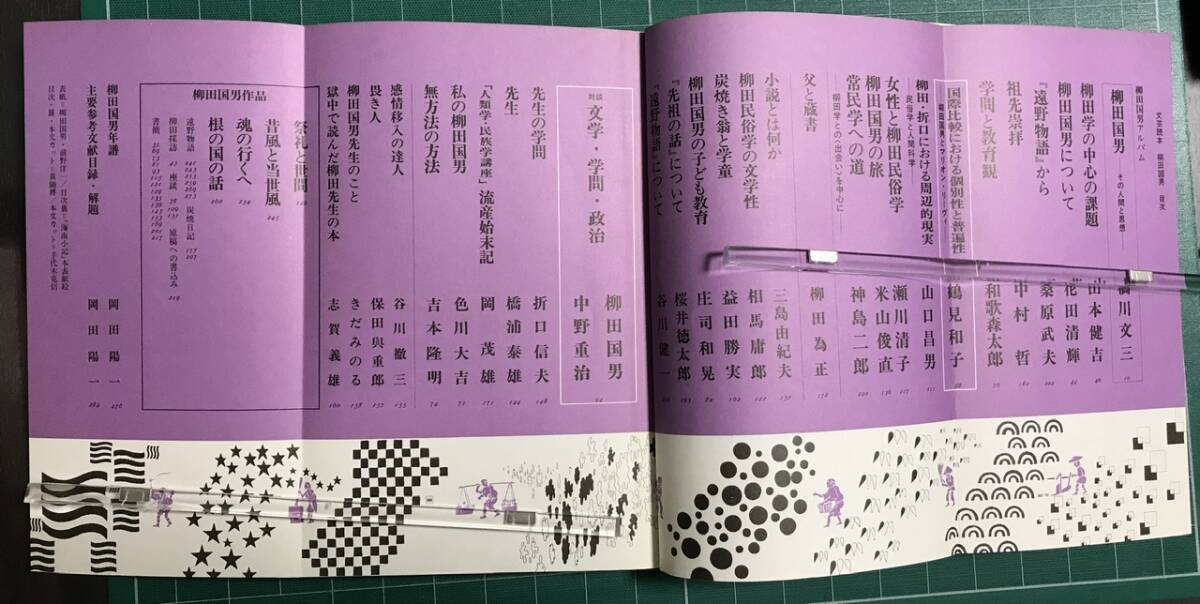 文芸読本 柳田國男 目次
柳田国男アルバム
柳田国男 ―その人間と思想― 橋川文三 10
柳田学の中心の課題 山本健吉 46
柳田国男について 花田清輝
『遠野物語』から 桑原武夫
祖先崇拝 中村哲
学問と教育観 和歌森太郎
国際比較における個別性と普遍性 鶴見和子
柳田国男とマリオン・リーヴィ
柳田・折口における周辺的現実 山口昌男
民俗学と人間科学
女性と柳田民俗学 瀬川清子 127
柳田国男の旅 米山俊直 136
常民学への道 神島二郎
柳田学との出会いを中心に
父と蔵書 柳田為正 178
小説とは何か 三島由紀夫 130
柳田民俗学の文学性 相馬庸郎 122
炭焼き翁と学童 益田勝実
柳田国男の子ども教育 庄司和晃 82
『先祖の話』について 桜井徳太郎 193
『遠野物語』について 谷川健一
対談
文学・学問・政治 柳田国男 中野重治
先生の学問 折口信夫 148
先生 橋浦泰雄 144
「人類学・民族学講座」流産始末記 岡茂雄 171
私の柳田国男 色川大吉 71
無方法の方法 吉本隆明 74
感情移入の達人 谷川徹三 155
畏き人 保田與重郎 157
柳田国男先生のこと きだみのる 158
獄中で読んだ柳田先生の本 志賀義雄 160
柳田国男作品
祭礼と世間
昔風と当世風 245
魂の行くへ 254
根の国の話 260
遠野物語
炭焼日記
柳田採訪 43
座談
原稿への書込み 219
書簡
柳田国男年譜 岡田陽一 276
主要参考文献目録・解題 岡田陽一 282